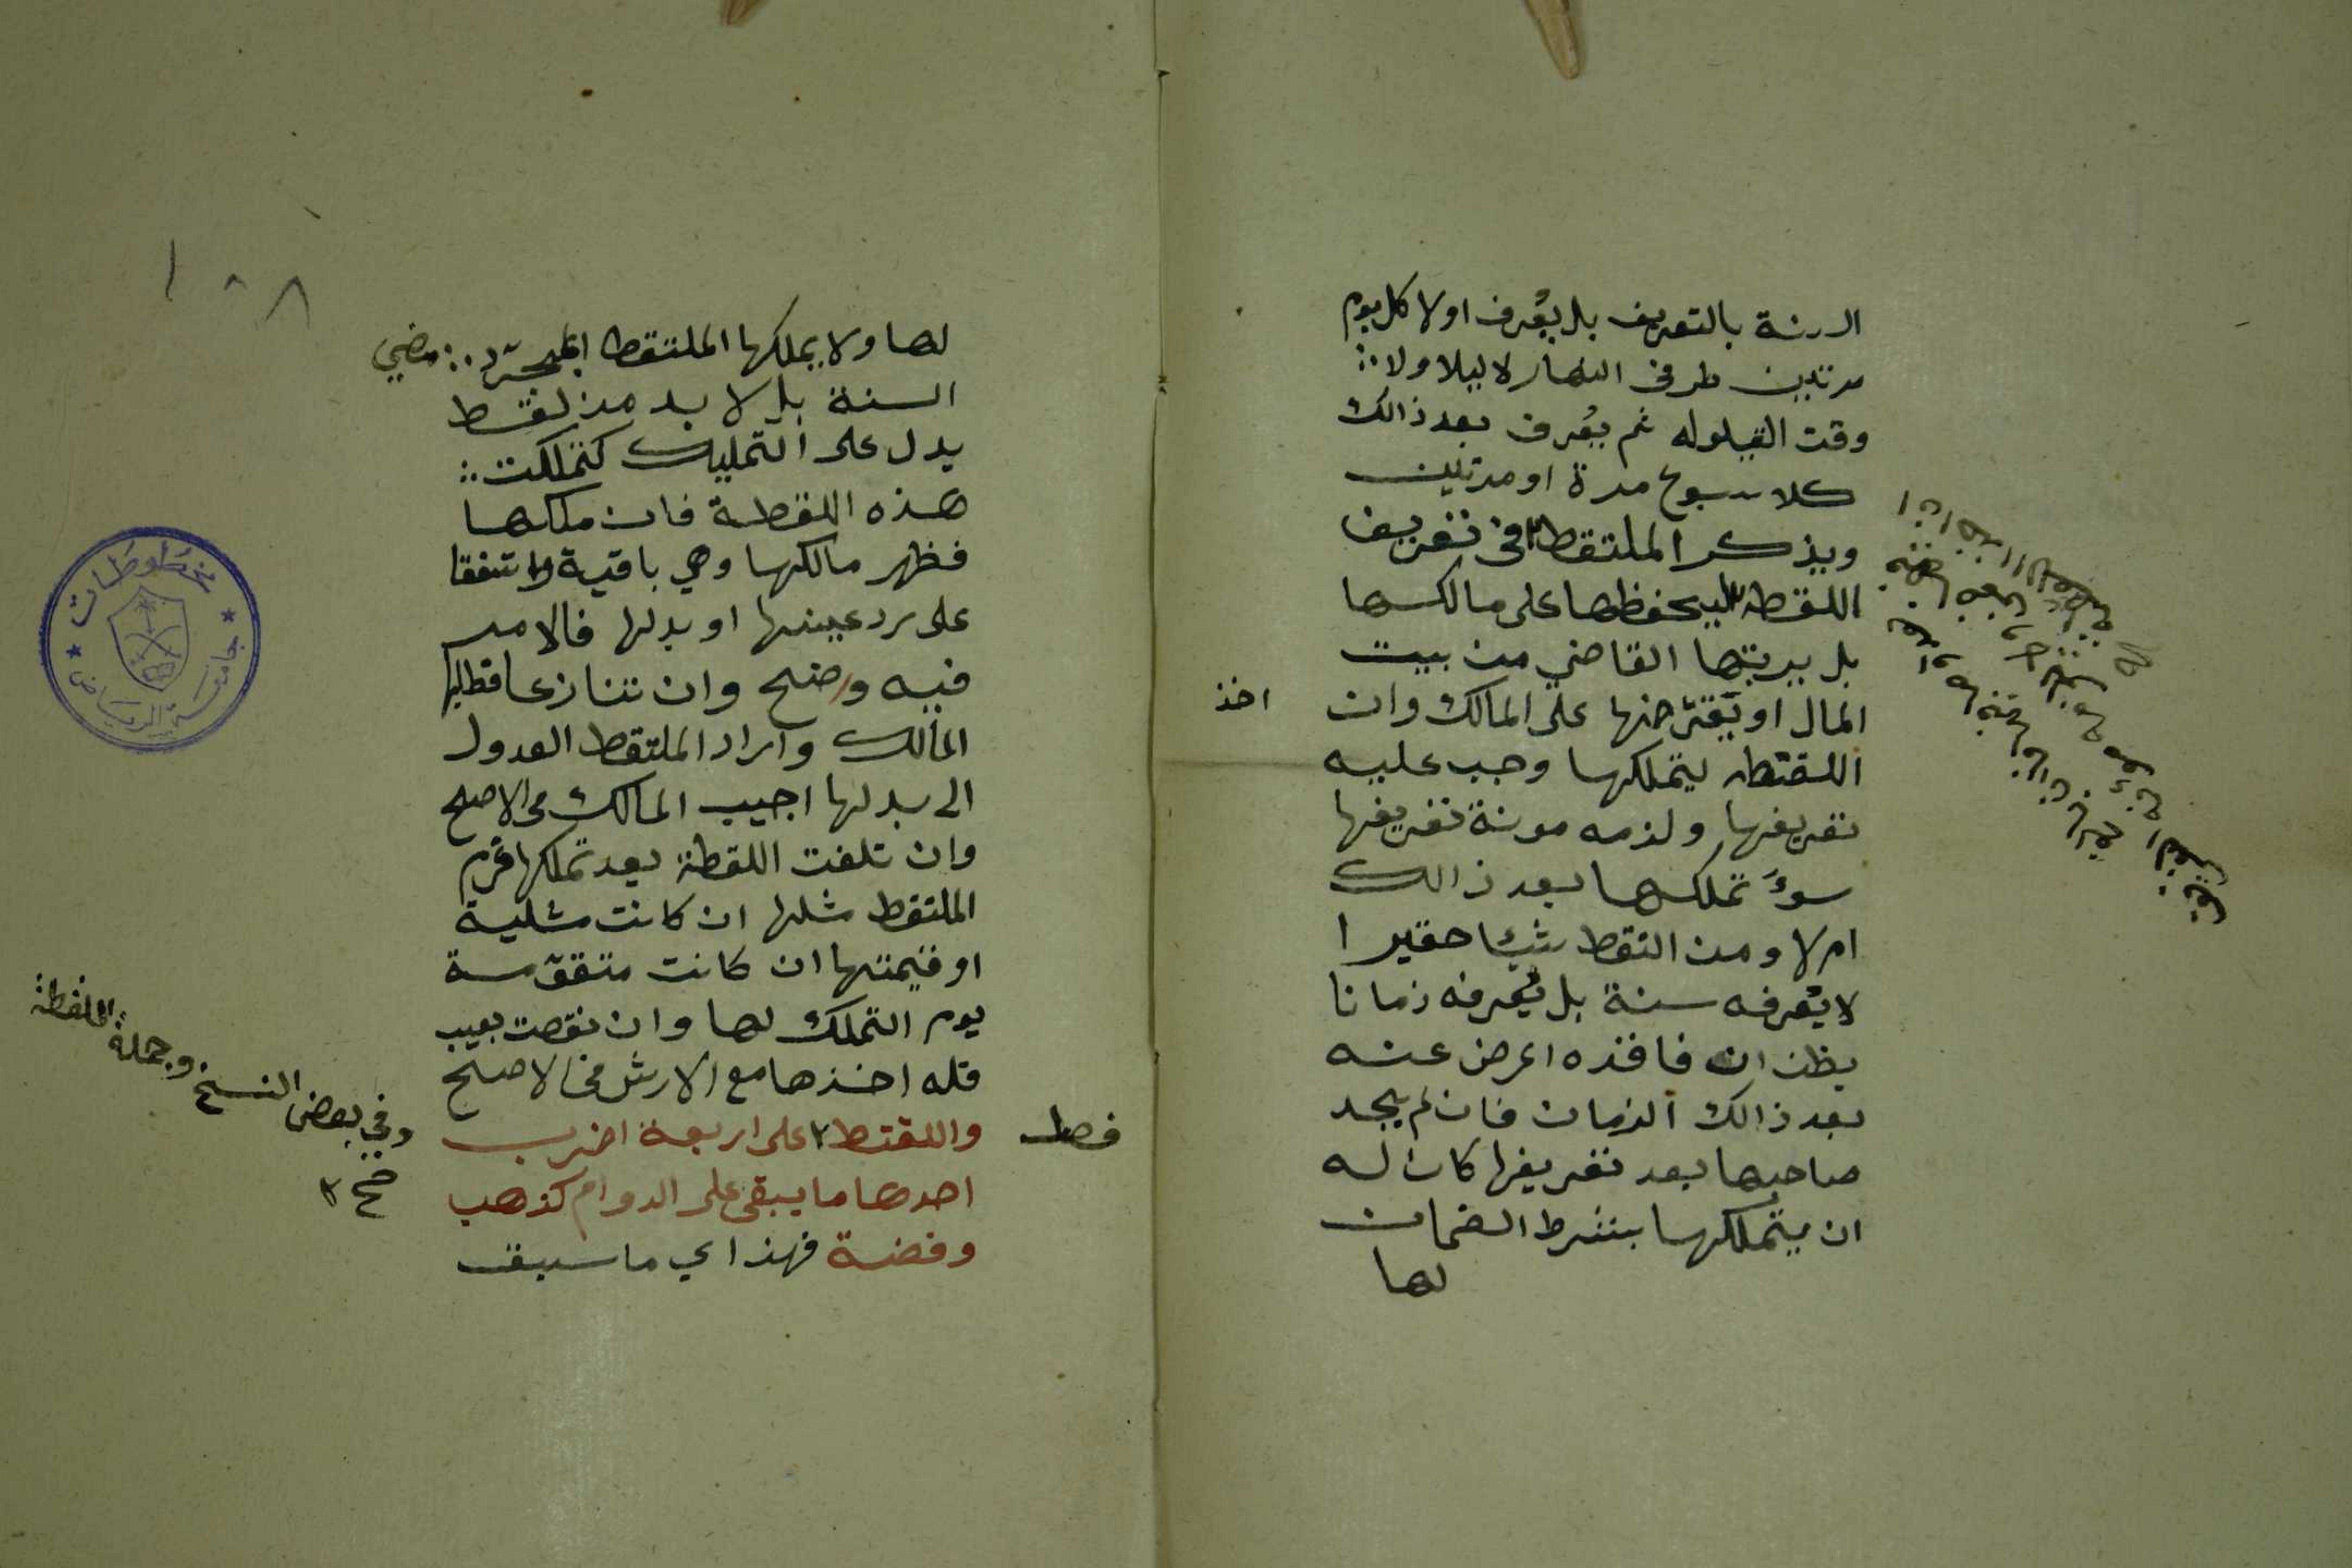 السنة بالتعريف بل يُعرف اولا كل يوم
مرتين طرفي النهار لا ليلا ولا
وقت القيلوله ثم يُعرف بعد ذالك
كلاسبوع مرة او مرتين
ويذكر الملتقط٢ في تعريف
اللقطة ليحفظها على مالكها
بل يرتبها القاضي من بيت
المال او يقترضها على المالك وان
اخذ
اللقطه ليتملكها وجب عليه
تعريفها ولزمه مونة تعريفها
سوءً تملكها بعد ذالك
ام لا ومن التقط شيئا حقيرا
لا يُعرفه سنة بل يُعرفه زمانا
يظن ان فاقده اعرض عنه
بعد ذالك الزمان فان لم يجد
صاحبها بعد تعريفها كان له
ان يتملكها بشرط الضمان
لها
١٠٨
لها ولا يملكها الملتقط بمجرّد مضي
السنة بل لا بد من لفظ
يدل على التمليك كتملكت
هذه اللقطة فان ملكها
فظهر مالكها وهي باقية واتفقا
على رد عينها او بدلها فالامر
فيه واضح وان تنازعا فطلبها
المالك واراد الملتقط العدول
الى بدلها اجيب المالك في الاصح
وان تلفت اللقطة بعد تملكها غرم
الملتقط مثلها ان كانت مثلية
او قيمتها ان كانت متقوّمة
يوم التملك لها وان نقصت بعيب
فله اخذها مع الارش في الاصح
فصل
واللقط٢ على اربعة اضرب
احدها ما يبقى على الدوام كذهب
وفضة فهذا اي ما سبق
وفي بعض النسخ وجملة اللقطة
صح ٢
مخطوطات
جامعة الرياض